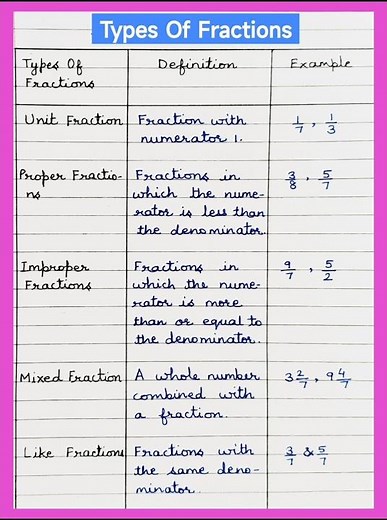 Types Of Fractions
Types Of Definition Example
Fractions
Unit Fraction Fraction with 1/7 , 1/3
numerator 1.
Proper Fractio- Fractions in 3/8 , 5/7
ns which the nume-
rator is less than
the denominator.
Improper Fractions in 9/7 , 5/2
Fractions which the nume-
rator is more
than or equal to
the denominator.
Mixed Fraction A whole number 3 2/7 , 9 4/7
combined with
a fraction.
Like Fractions Fractions with 3/7 & 5/7
the same deno-
minator.